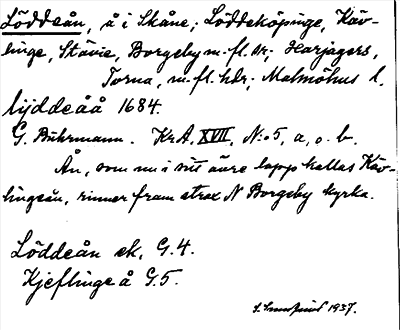 Löddeån, å i Skåne; Löddeköpinge, Käv-
linge, Stävie, Borgeby m. fl. sr; Harjagers,
Torna, m. fl. hdr; Malmöhus l.
lijddeåå 1684.
G. Buhrmann. Kr.A, XVII, N:o 5, a, o. b.
Ån, som nu i sitt övre lopp kallas Käv-
lingeån, rinner fram strax N Borgeby kyrka.
Löddeån ek. G.4.
Kjeflinge å G.5.
1937.